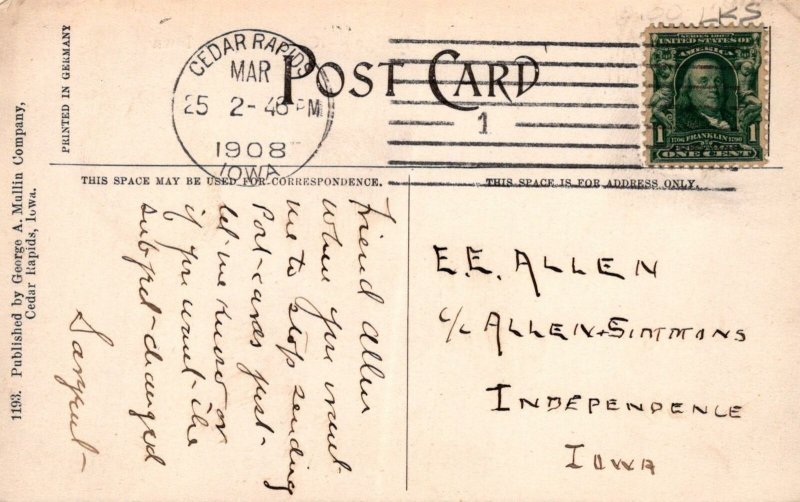 LKS
POST CARD
CEDAR RAPIDS
MAR
25 2-46 PM
1908
IOWA
1
SERIES 1902
UNITED STATES OF
AMERICA
1 1706 FRANKLIN 1790 1
ONE CENT
PRINTED IN GERMANY
1193. Published by George A. Mullin Company,
Cedar Rapids, Iowa.
THIS SPACE MAY BE USED FOR CORRESPONDENCE.
THIS SPACE IS FOR ADDRESS ONLY.
Friend Allen
When you want
me to stop sending
Post-cards just-
let me know or
if you want-the
subject-changed
Sargent-
E.E. ALLEN
c/o ALLEN+SIMMONS
INDEPENDENCE
IOWA